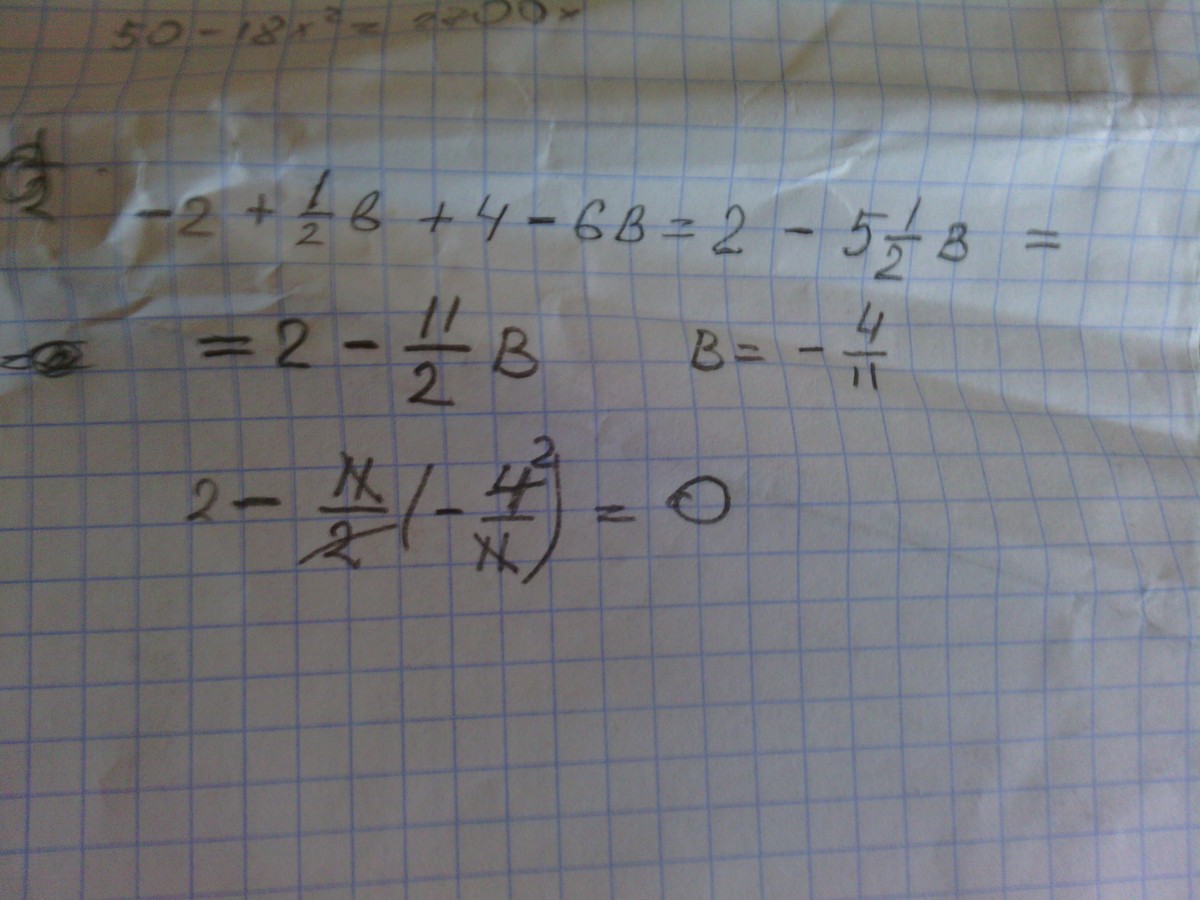 50 - 18x² = 2200x
1/2
-2 + 1/2 в + 4 - 6в = 2 - 5 1/2 в =
= 2 - 11/2 в в = - 4/11
2 - 11/2 (- 4/11)² = 0